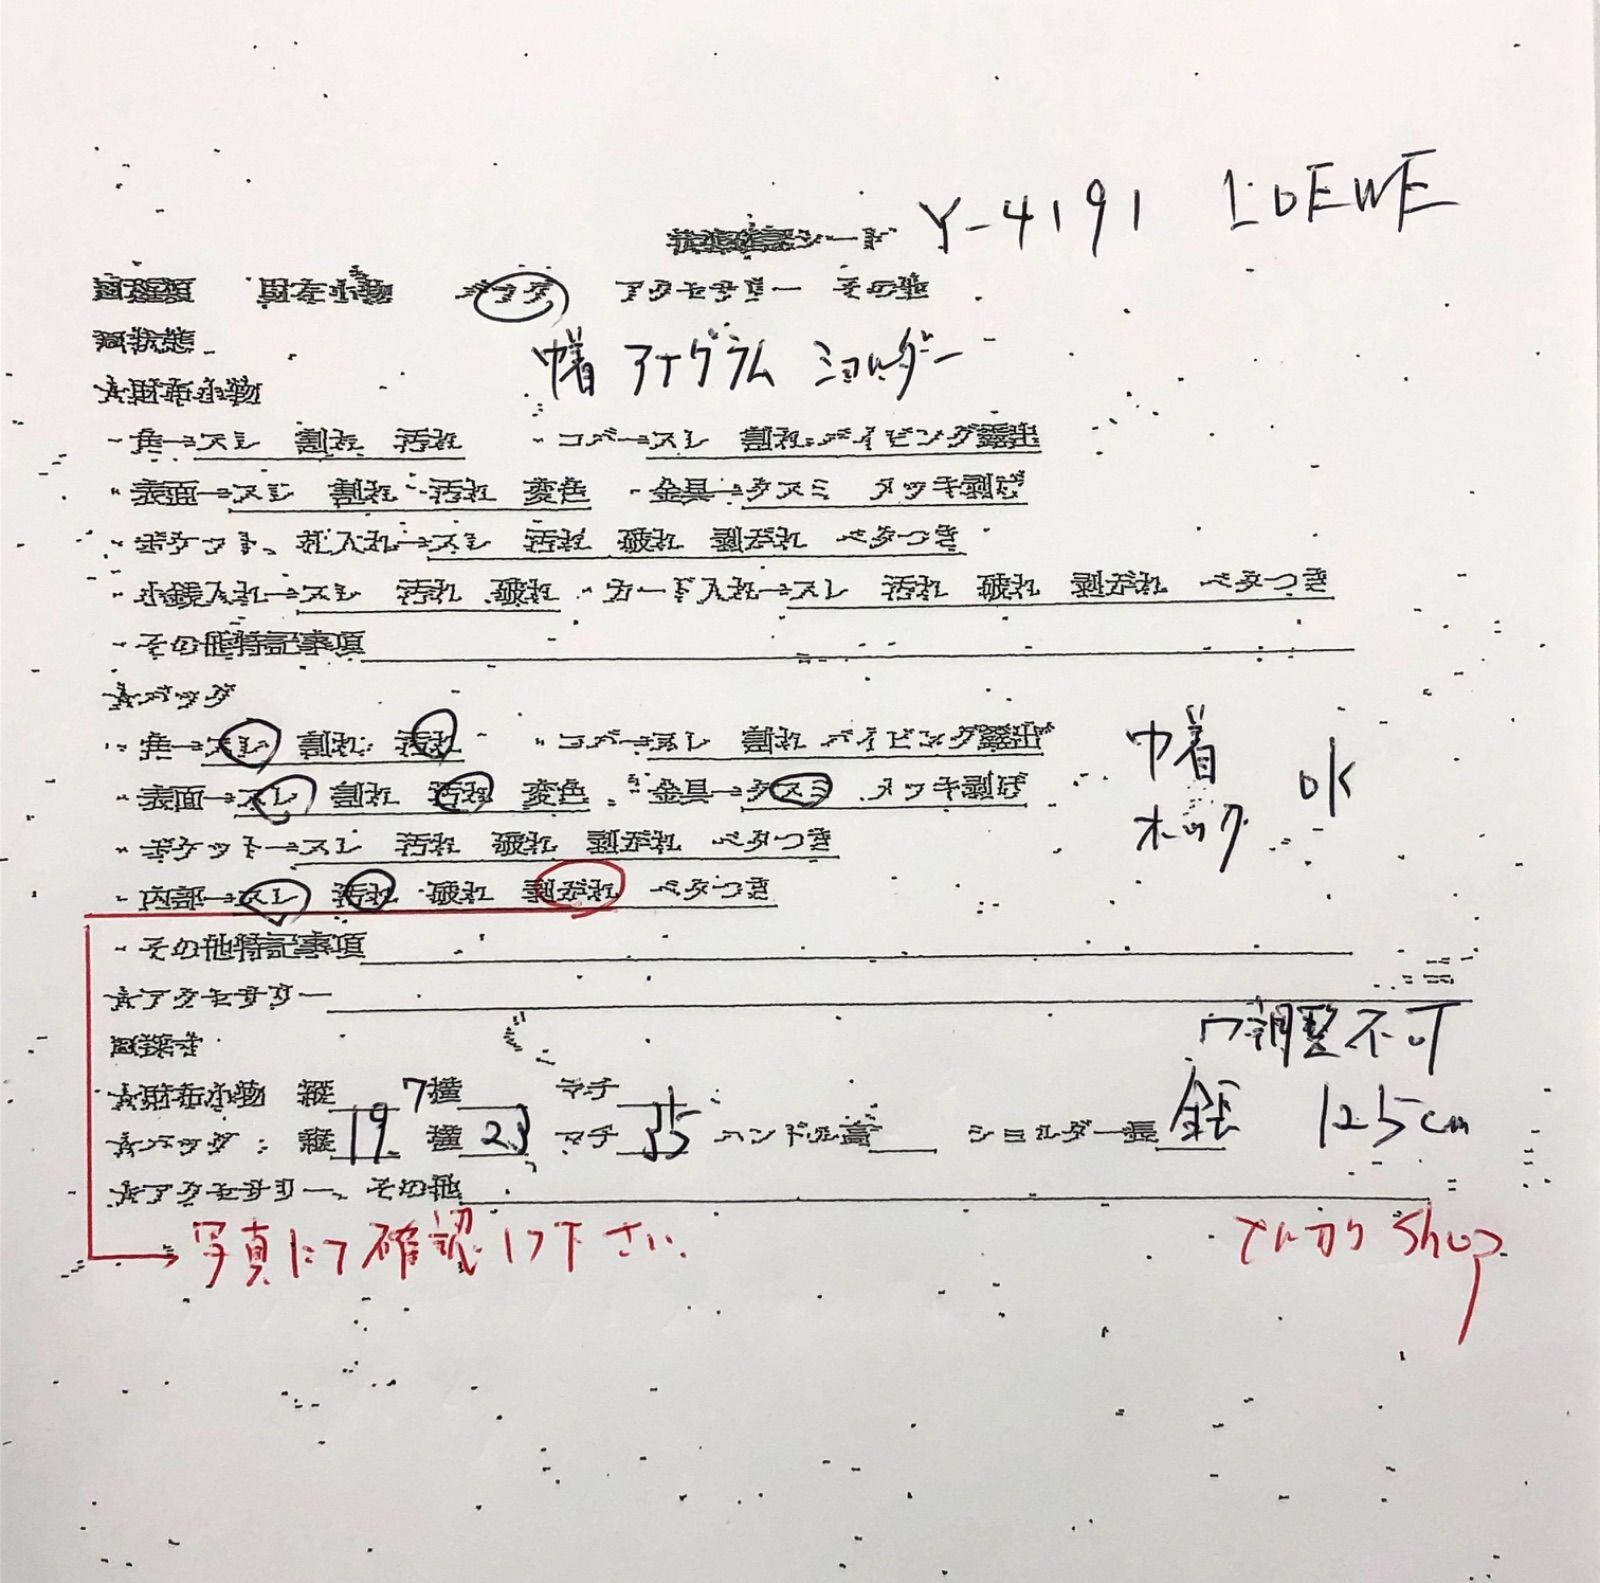 状態確認シート Y-4191 LOEWE
財布小物 バッグ アクセサリー その他
状態
巾着 アナグラム ショルダー
☆財布小物
・角→スレ 割れ 汚れ ・コバ→スレ 割れ パイピング露出
・表面→スレ 割れ 汚れ 変色 ・金具→クスミ メッキ剥げ
・ポケット、札入れ→スレ 汚れ 破れ 剥がれ ベタつき
・小銭入れ→スレ 汚れ 破れ ・カード入れ→スレ 汚れ 破れ 剥がれ ベタつき
・その他特記事項
☆バッグ
・角→スレ 割れ 汚れ ・コバ→スレ 割れ パイピング露出
・表面→スレ 割れ 汚れ 変色 ・金具→クスミ メッキ剥げ
巾着
ホック OK
・ポケット→スレ 汚れ 破れ 剥がれ ベタつき
・内部→スレ 汚れ 破れ 剥がれ ベタつき
・その他特記事項
☆アクセサリー
調整不可
採寸
☆財布小物 縦 横 マチ
☆バッグ: 縦19 横23 マチ ハンドル高 ショルダー長 全長 125cm
☆アクセサリー、その他
写真にて確認して下さい。
shop